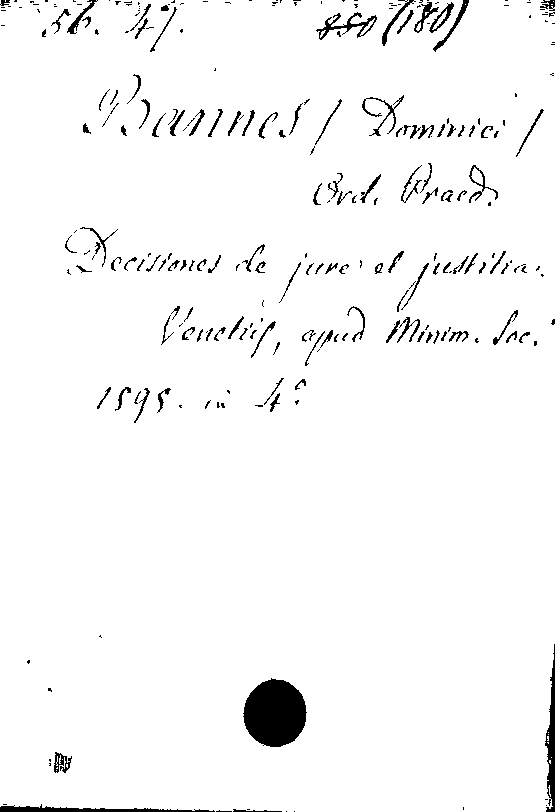 56. 47. 850 (180)
Bannes / Dominici /
Ord. Praed.
Decisiones de jure et justitia.
Venetiis, apud Minim. Soc.
1595. in 4º